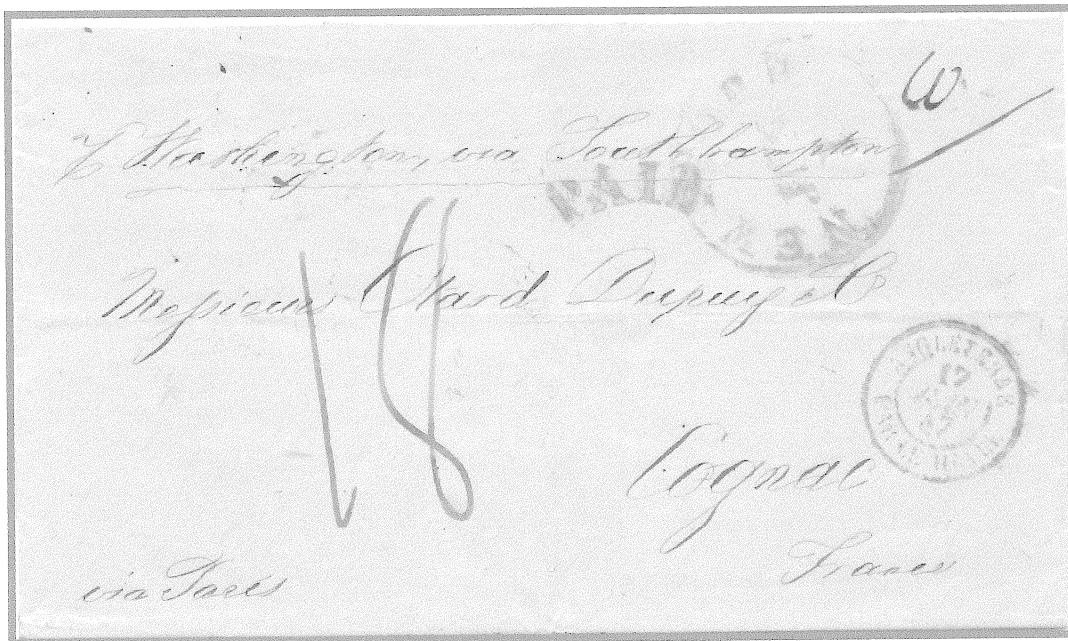 Washington, via Southhampton
PAID
Messieurs Otard Dupuy & Co
18
ANGLETERRE
Cognac
France
via Paris